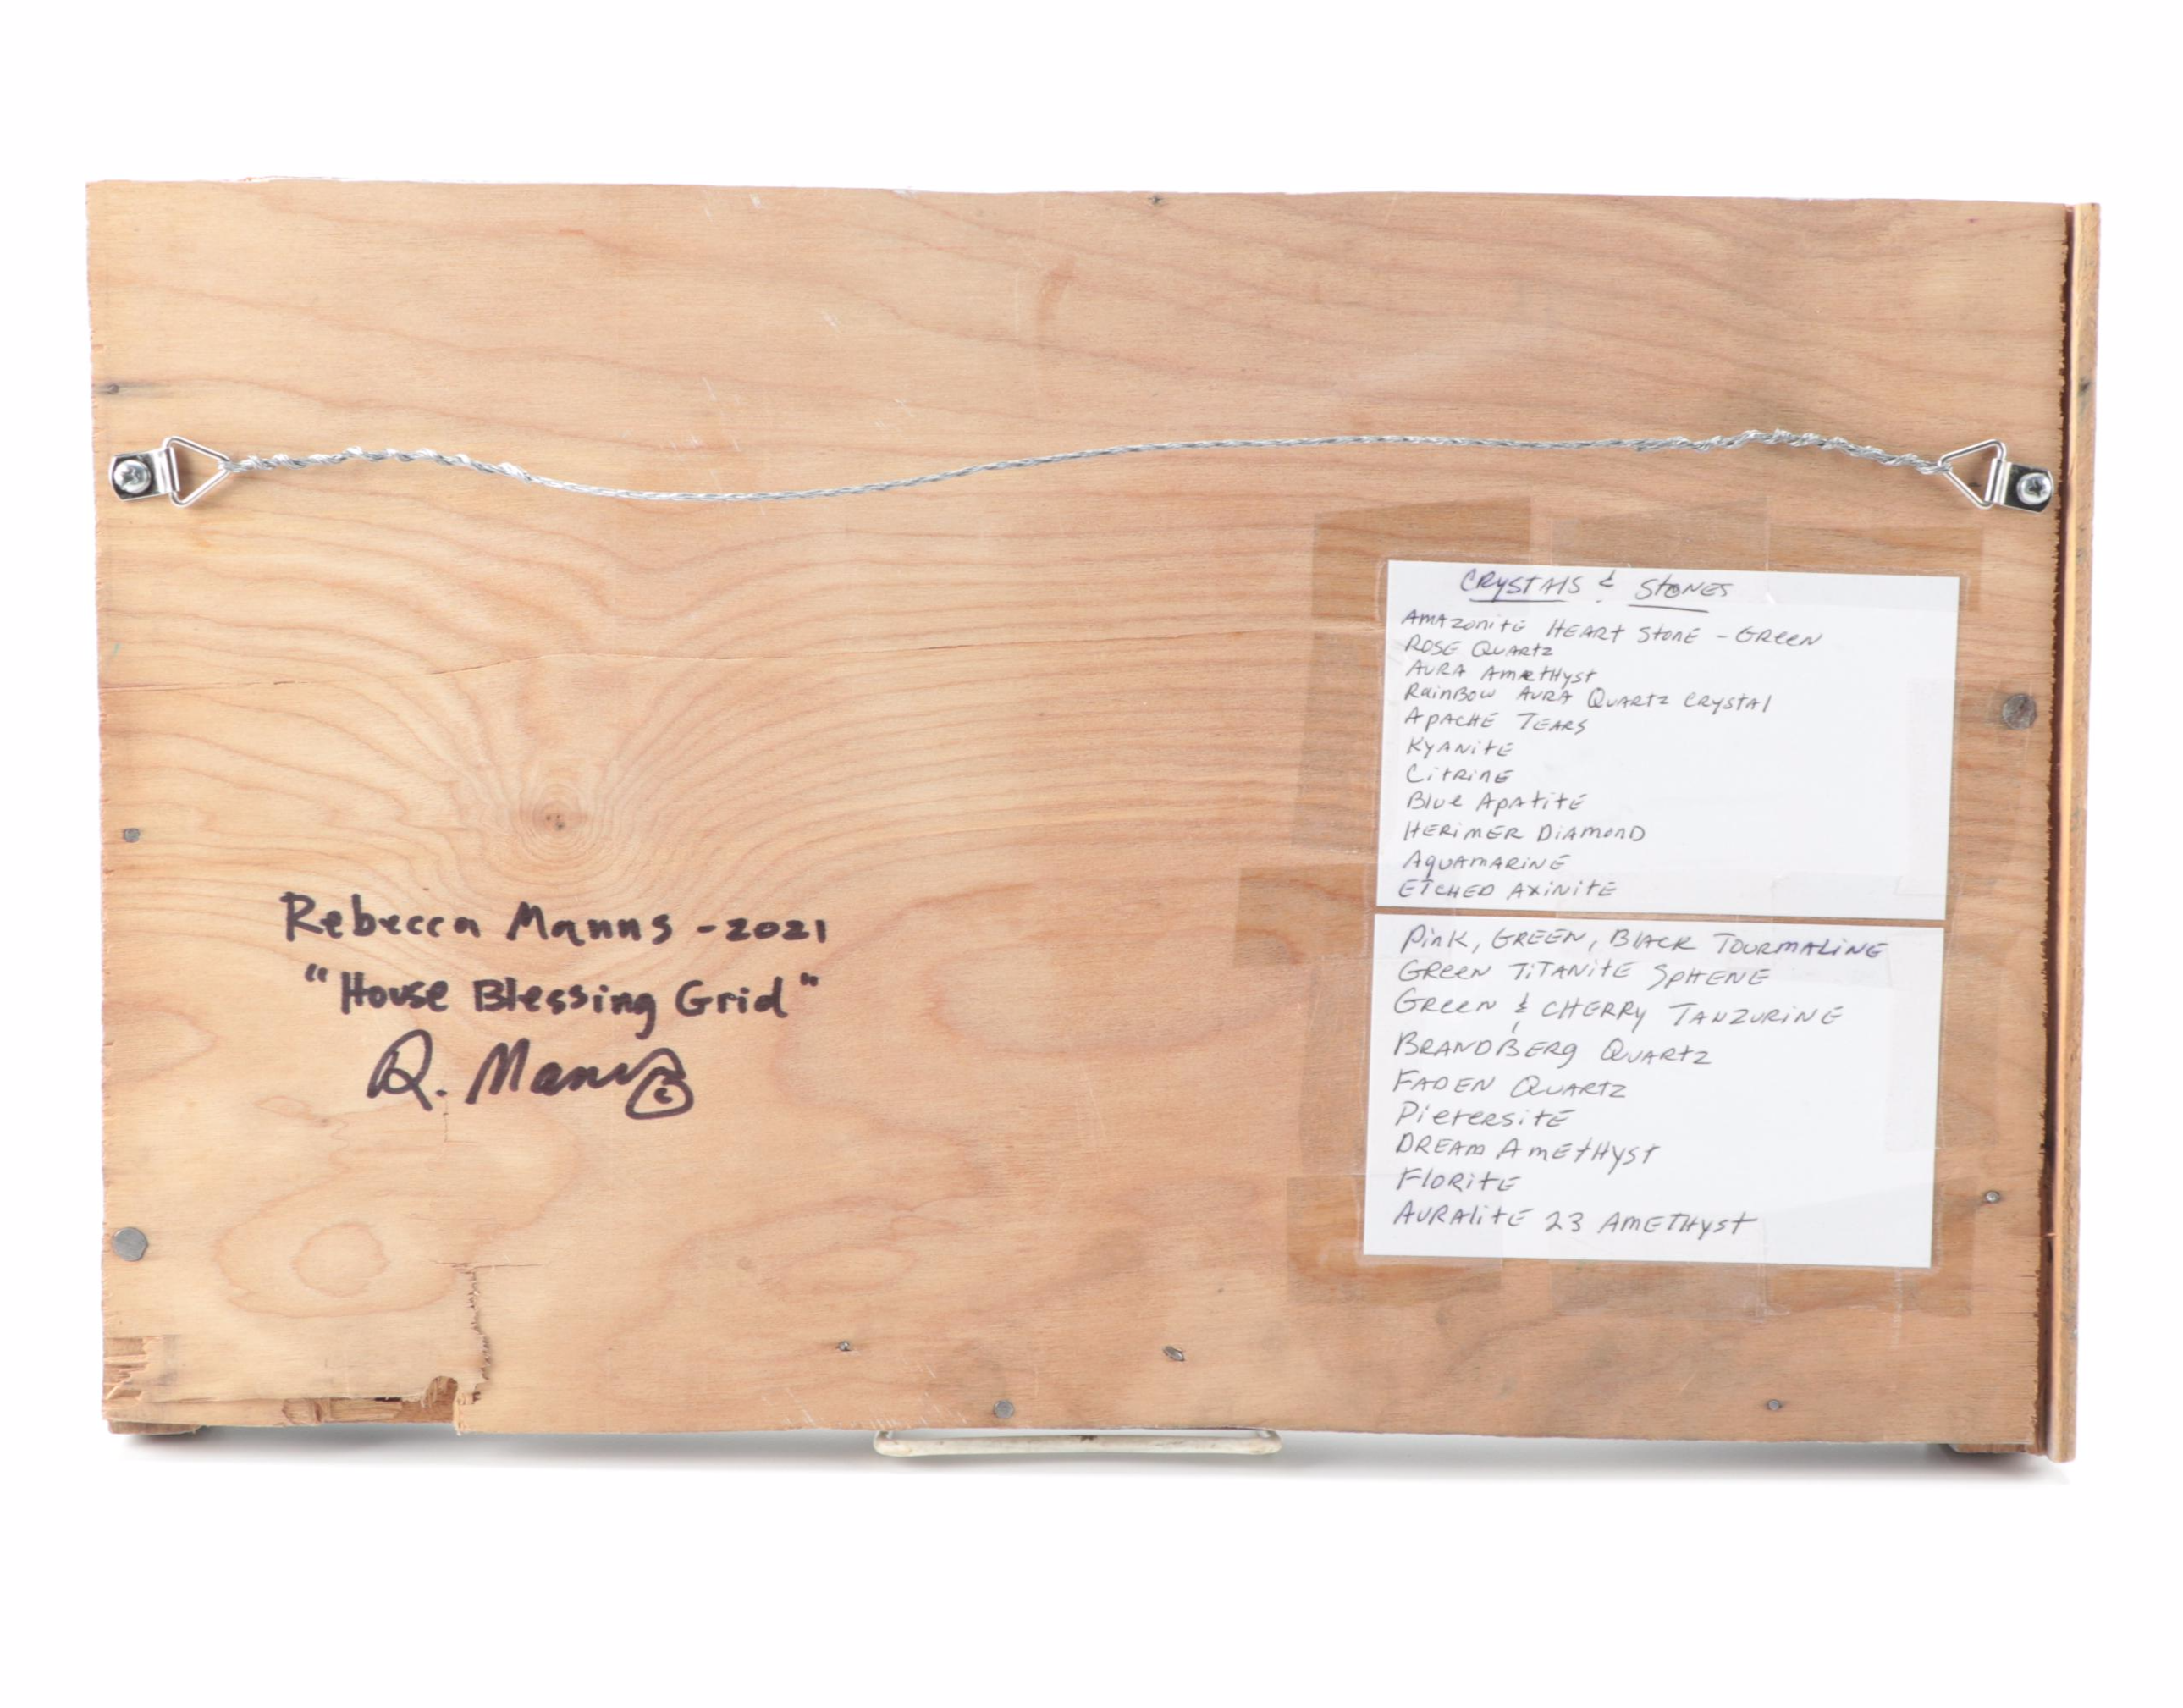 Rebecca Manns - 2021
"House Blessing Grid"
R. Manns ©
CRYSTAlS & StONES
AMAzonitE HEARt StonE - GReeN
ROSE QUARtz
AURA AmetHyst
RainBow AURA QUARtz CRystal
APACHE TEARS
KyANitE
CitRinE
Blue ApAtitE
HERiMER DiAmonD
AquamARinE
ETCHED AxiNitE
PinK, GREEN, BlAcK TOURMALiNE
GReeN TiTANitE SpHENE
GReeN & CHERRy TANZURiNE
BRANDBERg QUARtz
FADEN QUARTZ
PieteRsitE
DREAm AmEtHyst
FloRitE
AURAlitE 23 AmETHyst